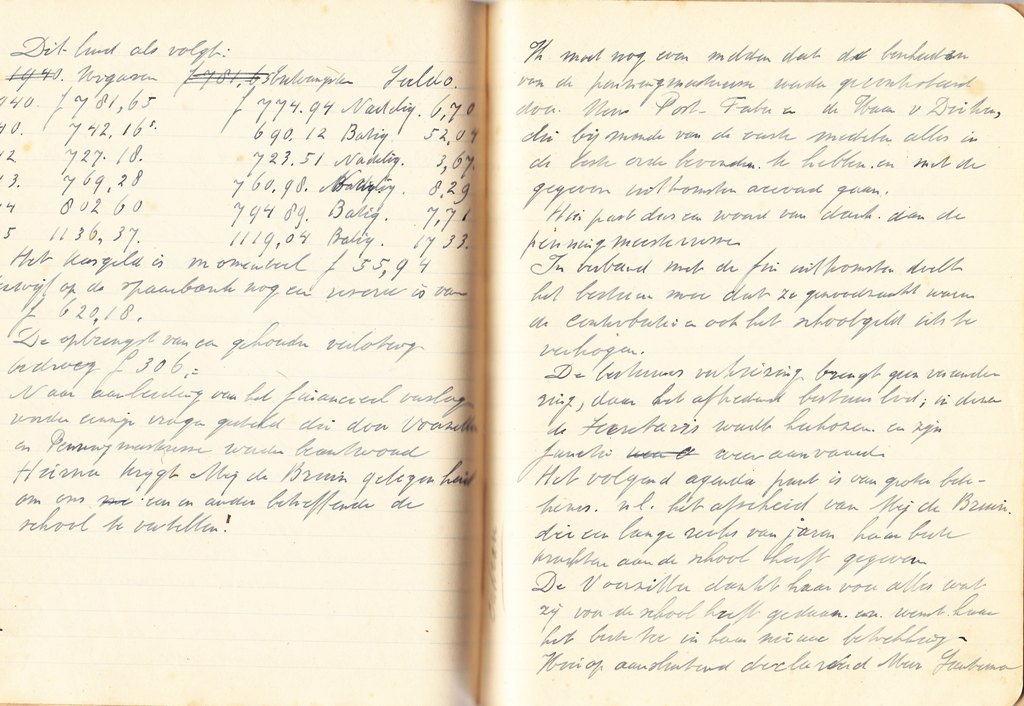 Dit luid als volgt:
1940. Uitgaven f 781,65 Ontvangsten Saldo.
940. f 781,65 f 774.94 Nadelig. 6,70
40. 742,16⁵. 690.12 Batig 52,04
2 727.18. 723.51 Nadelig. 3,67.
3. 769,28 760.98. 8.29
4 802 60 794 89. Batig. 7,71
5 1136,37. 1119,04 Batig. 17 33.
Het kasgeld is momenteel f 55,94
terwijl op de spaarbank nog een reserve is van
f 620,18.
De opbrengst van een gehouden verloting
bedroeg f 306,=
Naar aanleiding van het financieel verslag
worden eenige vragen gesteld die door Voorzitter
en Penningmeesteresse worden beantwoord
Hierna krijgt Mej de Bruin gelegenheid
om ons een en ander betreffende de
school te vertellen.
Ik moet nog even melden dat de bescheiden
van de penningmeesteresse werden gecontroleerd
door Post- Faber en de Haan v
die bij monde van de eerste mededeelde alles in
de beste orde bevonden te hebben en met de
gegeven uitkomsten accoord gaan.
Hier past dus een woord van dank aan de
penningmeesteresse
In verband met de fin uitkomsten deelt
het bestuur mee dat ze genoodzaakt waren
de contributie en ook het schoolgeld iets te
verhogen.
De bestuurs verkiezing brengt geen verander
ring, daar het aftredend bestuurslid, in dezen
de secretaris wordt herkozen en zijn
functie weer aanvaard
Het volgend agenda punt is van groter bete-
kenis. n.l. het afscheid van Mej de Bruin.
die een lange reeks van jaren haar beste
krachten aan de school heeft gegeven
De Voorzitter dankt haar voor alles wat
zij voor de school heeft gedaan en wenst haar
het beste toe in haar nieuwe betrekking
Hierop aansluitend declareerd Mevr